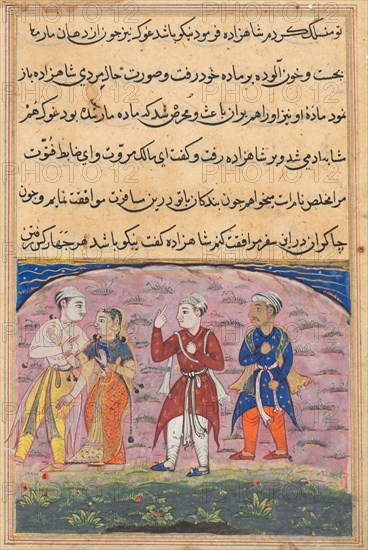 تو منسلک کردم شاهزاده فرمود نیکو باشد غوک نیز چون از دهان مار
بجست و خون آلوده بر ماده خود رفت و صورت حال مردی شاهزاده باز
نمود ماده او نیز او را هم بران باعث و محرض شد که ماده مار شده بود غوک هم
شاهزاده رفت و گفت ای مالک مروت و ای ضابط فتوت
مرا مخلص نام است میخواهم چون بندگان با تو درین مسافرت موافقت نمایم و چون
چاکران درین سفر مرافقت کنم شاهزاده گفت نیکو باشد هر چهار کس